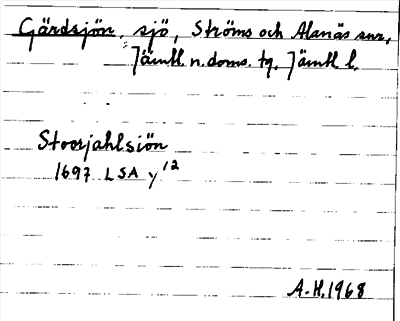 Gärdsjön, sjö, Ströms och Alanäs snr,
Jämtl. n. doms. tg. Jämtl l.
Stoorjahlsiön
1697 LSA y 12
A.H. 1968